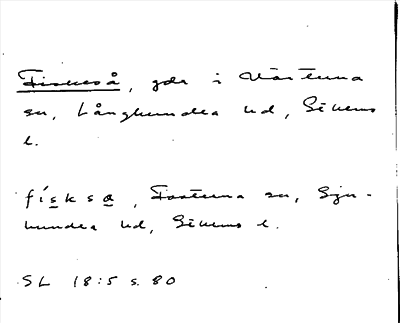 Fiskeså, gda i Närtuna
sn, Långhundra hd, Sthlms
l.
físksa, Fasterna sn, Sju-
hundra hd, Sthlms l.
SL 18:5 s. 80